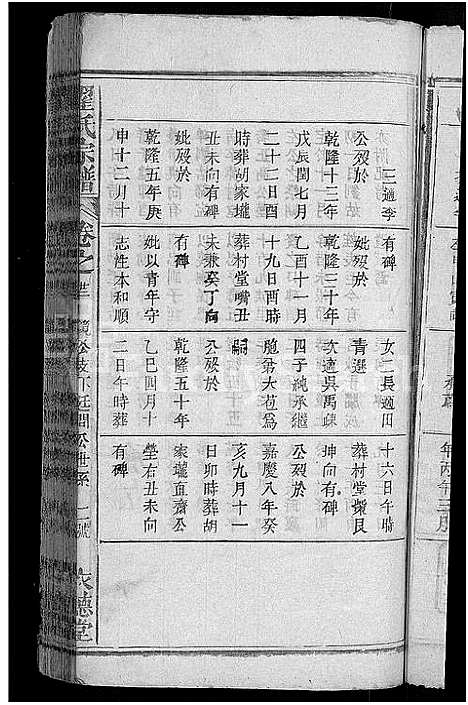 三適李
公歿於
乾隆十三年
戊辰閏七月
二十二日酉
時葬胡家壠
丑未向有碑
妣歿於
乾隆五年庚
申十二月十
有碑
妣歿於
乾隆三十年
乙酉十一月
十九日酉時
葬村堂嘴丑
未兼癸丁向
有碑
妣以青年守
志性本和順
女二長適田
青選
次適吳禹疎
四子純承繼
胞弟大苞爲
嗣
公歿於
乾隆五十年
乙巳四月十
二日午時葬
十六日午時
葬村堂
坤向有碑
公歿於
嘉慶八年癸
亥九月十一
日卯時葬胡
家壠直齋公
塋右丑未向
有碑
氏宗譜
卷之
公世系
德堂